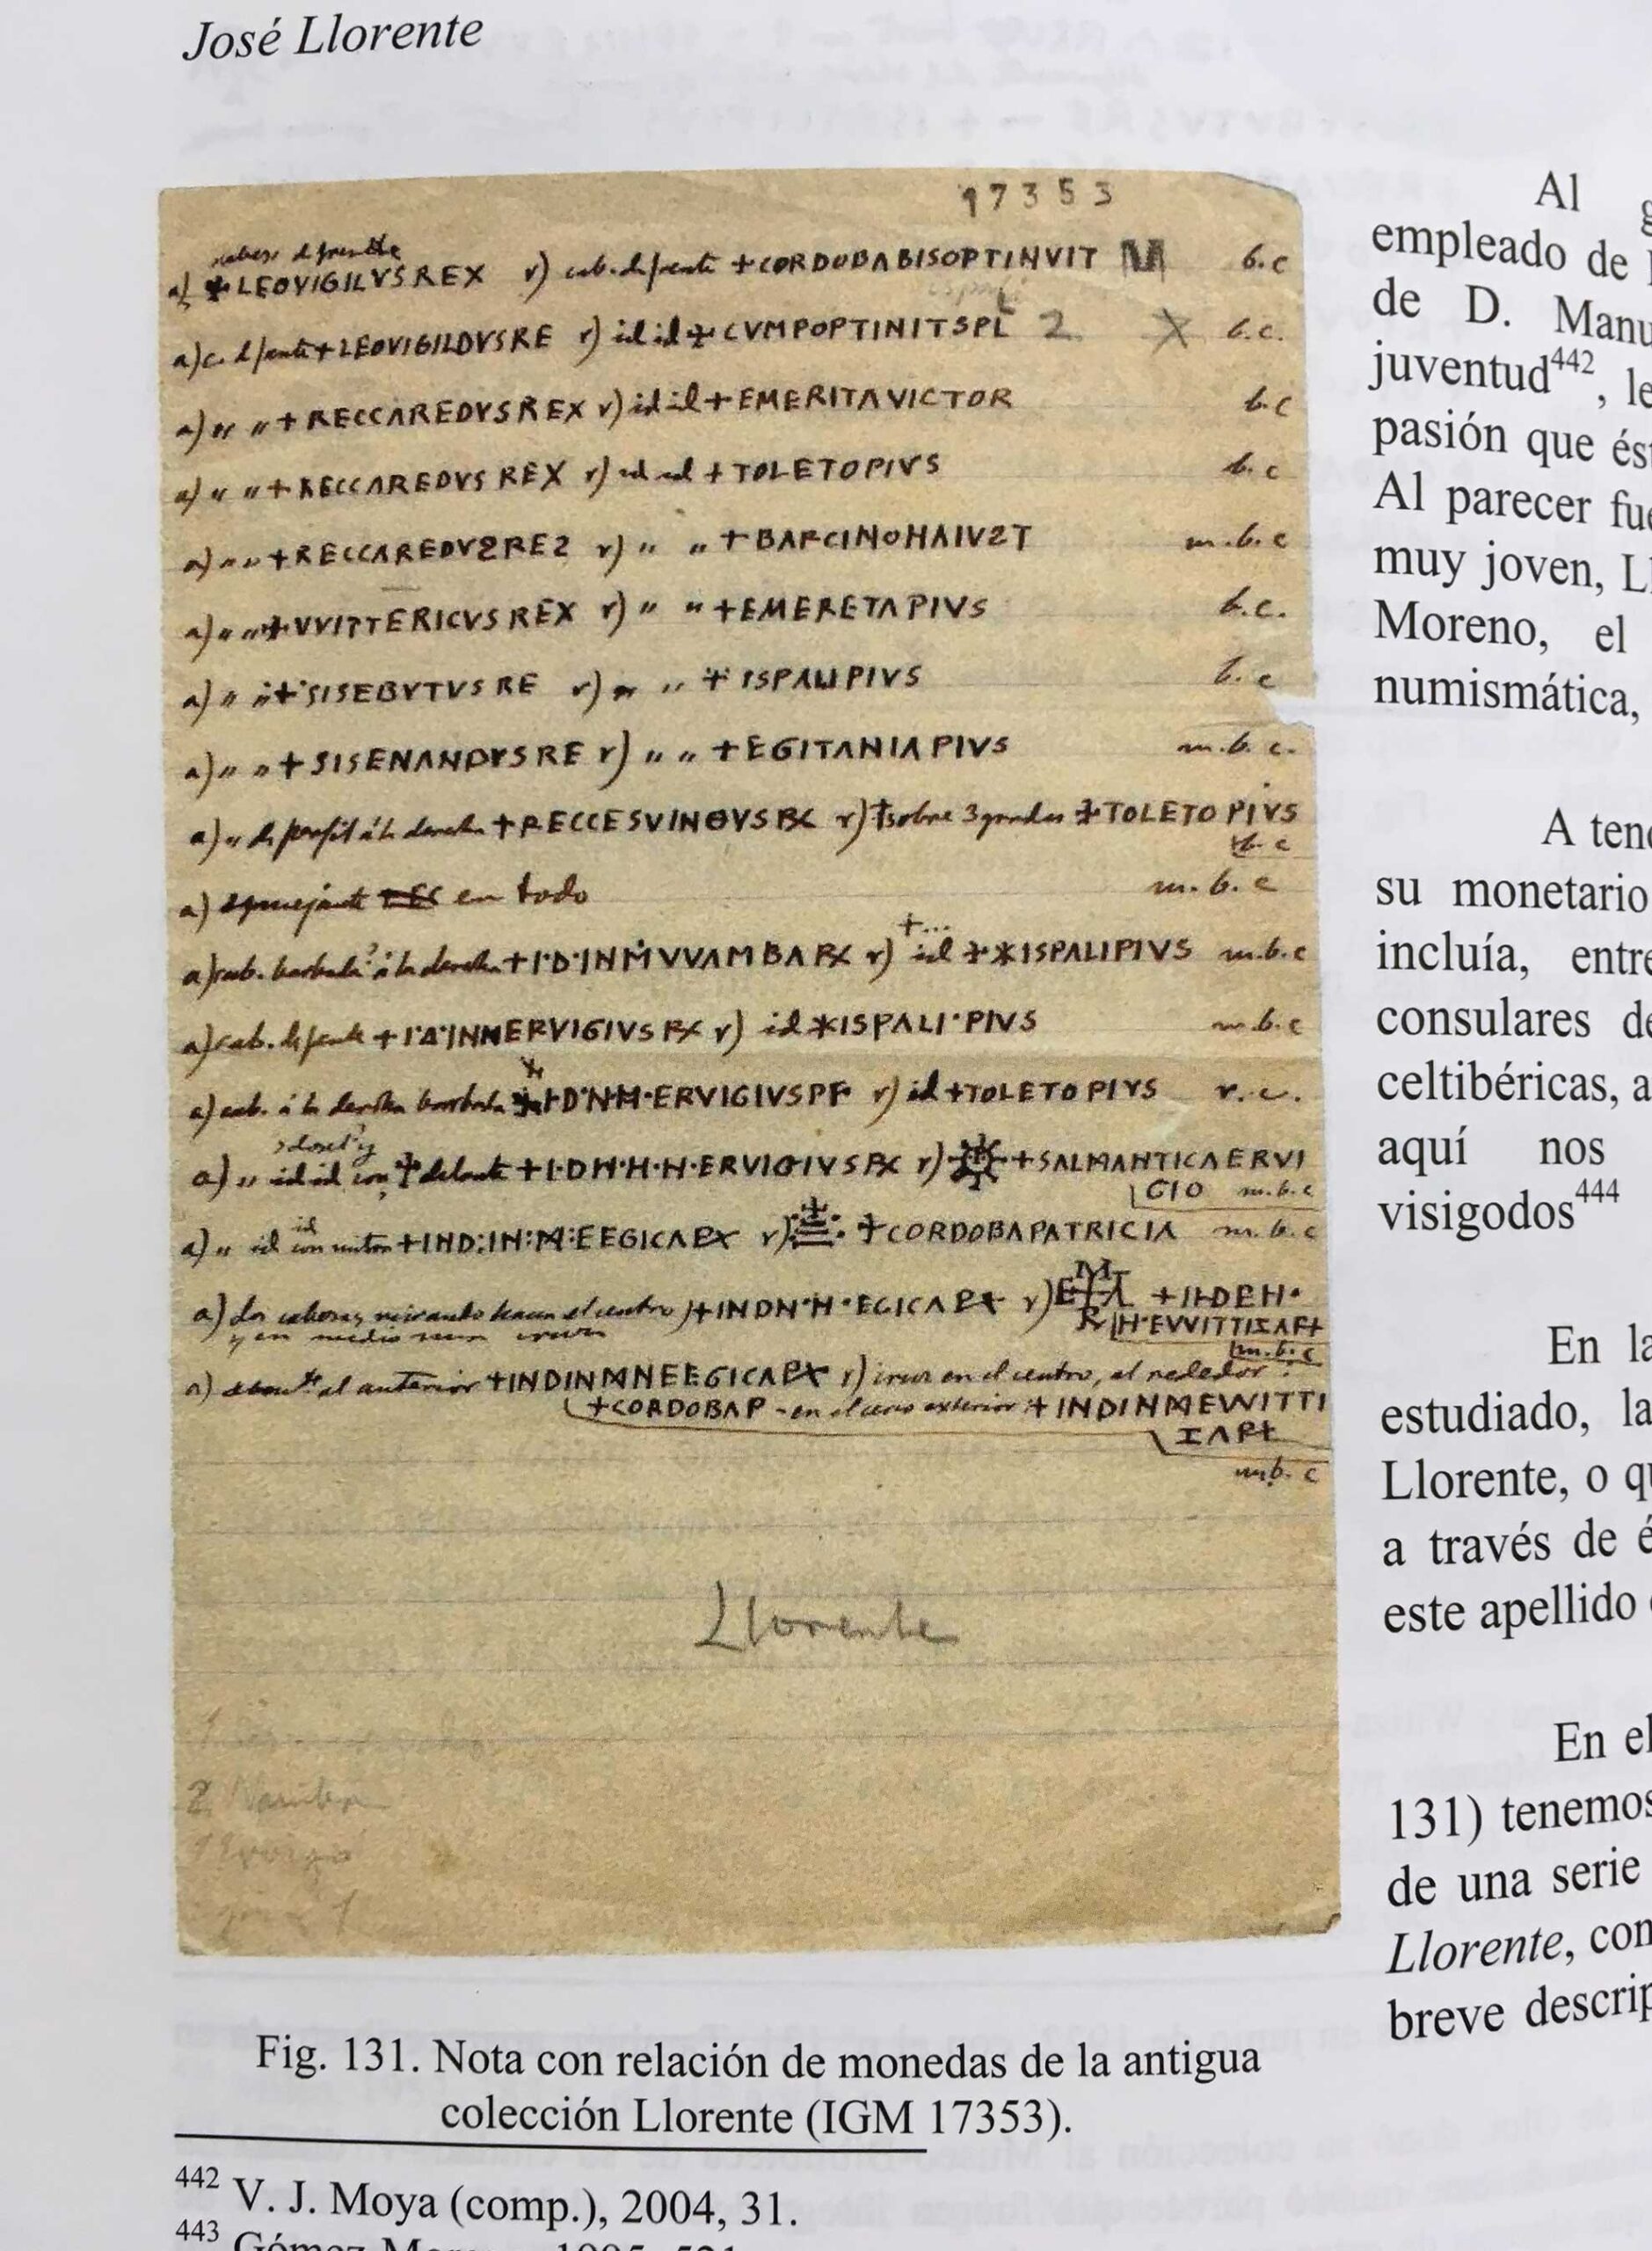 José Llorente
17353
cabeza de frente
a) +LEOVIGILVS REX r) cab. de frente +CORDOBABISOPTINVIT M b.c
a) c. d frente +LEOVIGILDVSRE r) id id + CVMPOPTINITSPL 2 X b.c.
a) " " + RECCAREDVS REX r) id id + EMERITAVICTOR b.c
a) " " + RECCAREDVS REX r) id id + TOLETOPIVS b.c
a) " " + RECCAREDVƧREƧ r) " " + BARCINOHAIVƧT m.b.c
a) " " + VVITTERICVS REX r) " " + EMERETA PIVS b.c.
a) " " + SISEBVTVS RE r) " " + ISPALI PIVS b.c
a) " " + SISENANDVS RE r) " " + EGITANIA PIVS m.b.c.
a) " de perfil á la derecha + RECCESVINΘVS RX r) † sobre 3 gradas + TOLETO PIVS
b.c
a) semejante en todo m.b.c
+...
a) cab. barbada? á la derecha + I·D·INM VVAMBA RX r) id + * ISPALIPIVS m.b.c
a) cab. de frente + I·D·INNERVIGIVS RX r) id * ISPALI·PIVS m.b.c
a) cab. á la derecha barbada +I·D·N·M·ERVIGIVSPF r) id +TOLETO PIVS r.c.
a) " id id con delante +I·DN·H·N·ERVIGIVS RX r) +SALMANTICAERVI
GIO m.b.c
id
a) " id con +IND:IN:M:EEGICA RX r) + CORDOBAPATRICIA m.b.c
a) dos cabezas mirando hacia el centro) +INDN·H·EGICA RX r) + INDEH·
y en medio una cruz H·EVVITTIZAR+
m.b.c
a) al anterior +INDINMNEEGICARX r) cruz en el centro, al rededor:
+CORDOBAP - en el exterior: + INDINMEWITTI
IAR+
m.b.c
Llorente
2
Al
empleado de
de D. Manu
juventud442, le
pasión que és
Al parecer fue
muy joven, Ll
Moreno, el
numismática,
A tene
su monetario
incluía, entre
consulares de
celtibéricas, a
aquí nos
visigodos444
En la
estudiado, la
Llorente, o qu
a través de é
este apellido
En el
131) tenemos
de una serie
Llorente, con
breve descrip
Fig. 131. Nota con relación de monedas de la antigua
colección Llorente (IGM 17353).
442 V. J. Moya (comp.), 2004, 31.
443